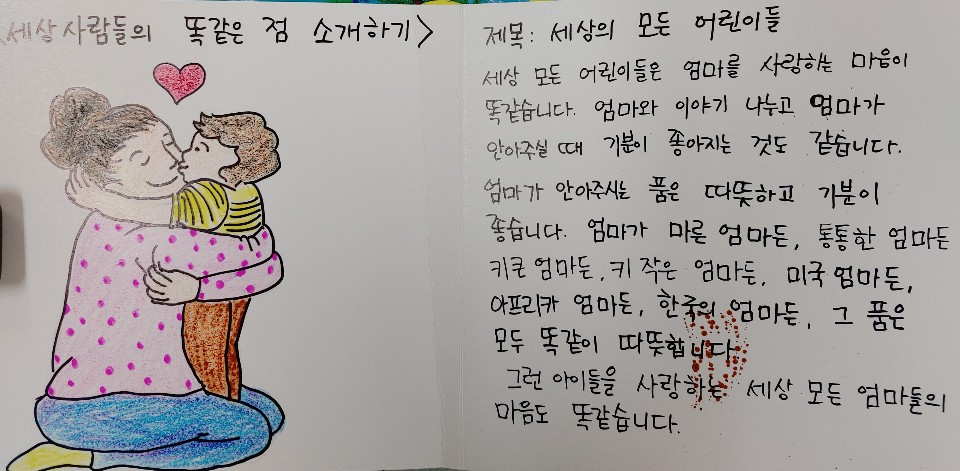 <세상 사람들의 똑같은 점 소개하기>
제목: 세상의 모든 어린이들
세상 모든 어린이들은 엄마를 사랑하는 마음이
똑같습니다. 엄마와 이야기 나누고 엄마가
안아주실 때 기분이 좋아지는 것도 같습니다.
엄마가 안아주시는 품은 따뜻하고 기분이
좋습니다. 엄마가 마른 엄마든, 통통한 엄마든
키큰 엄마든, 키 작은 엄마든, 미국 엄마든,
아프리카 엄마든, 한국의 엄마든, 그 품은
모두 똑같이 따뜻합니다.
그런 아이들을 사랑하는 세상 모든 엄마들의
마음도 똑같습니다.